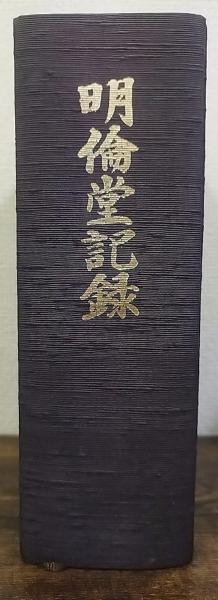 明倫堂記録